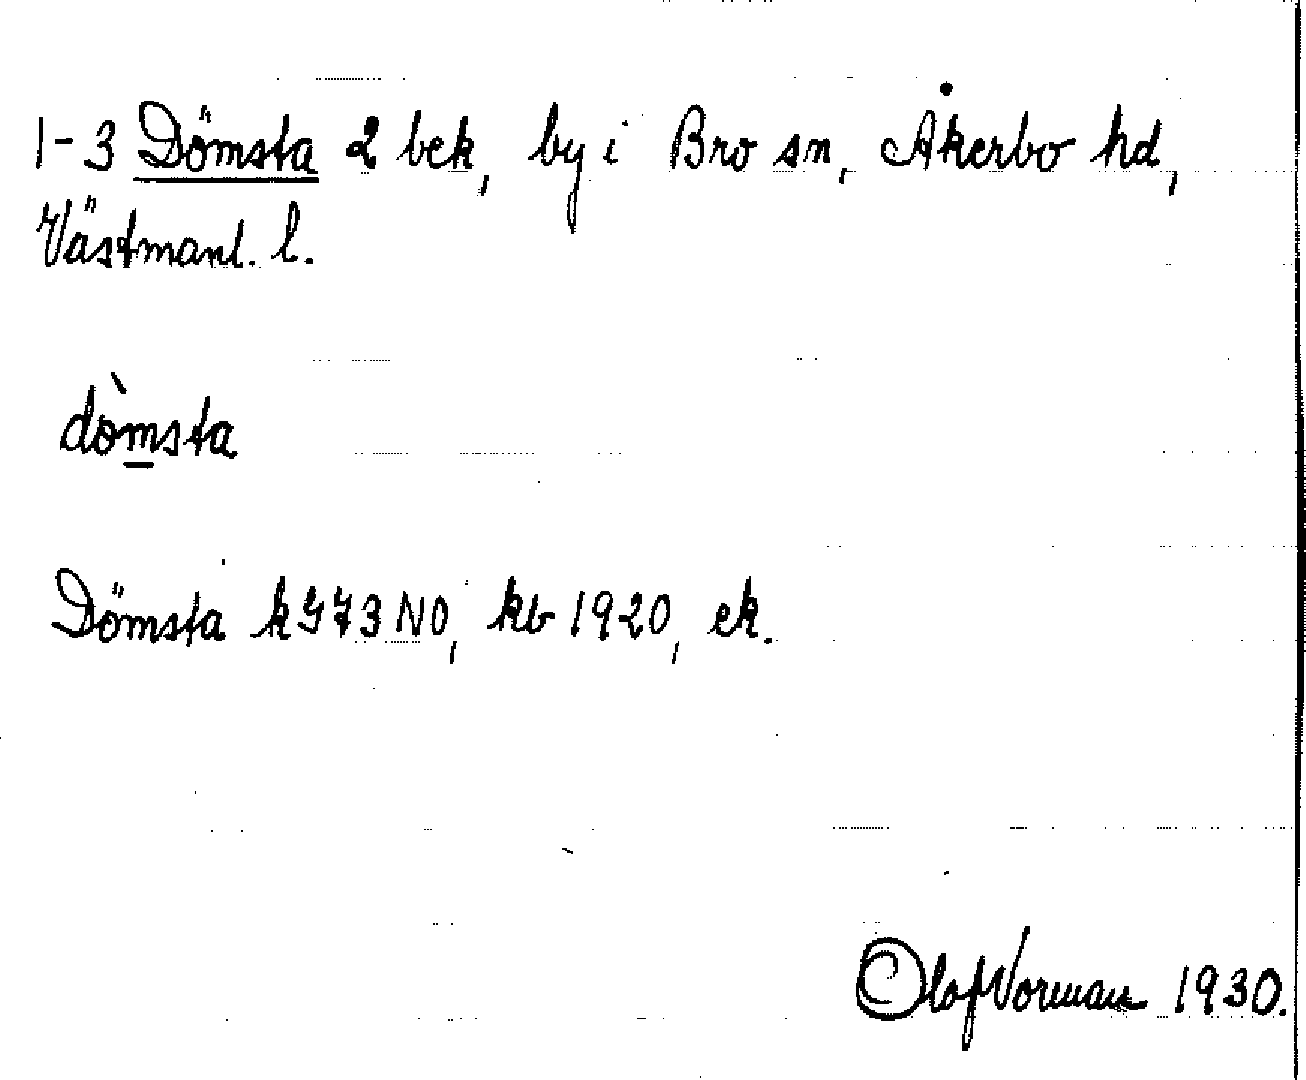 1-3 Dömsta 2 bek, by i Bro sn, Åkerbo hd,
Västmanl. l.
dòmsta
Dömsta k 973 NO, kb 1920, ek.
Olof Norman 1930.